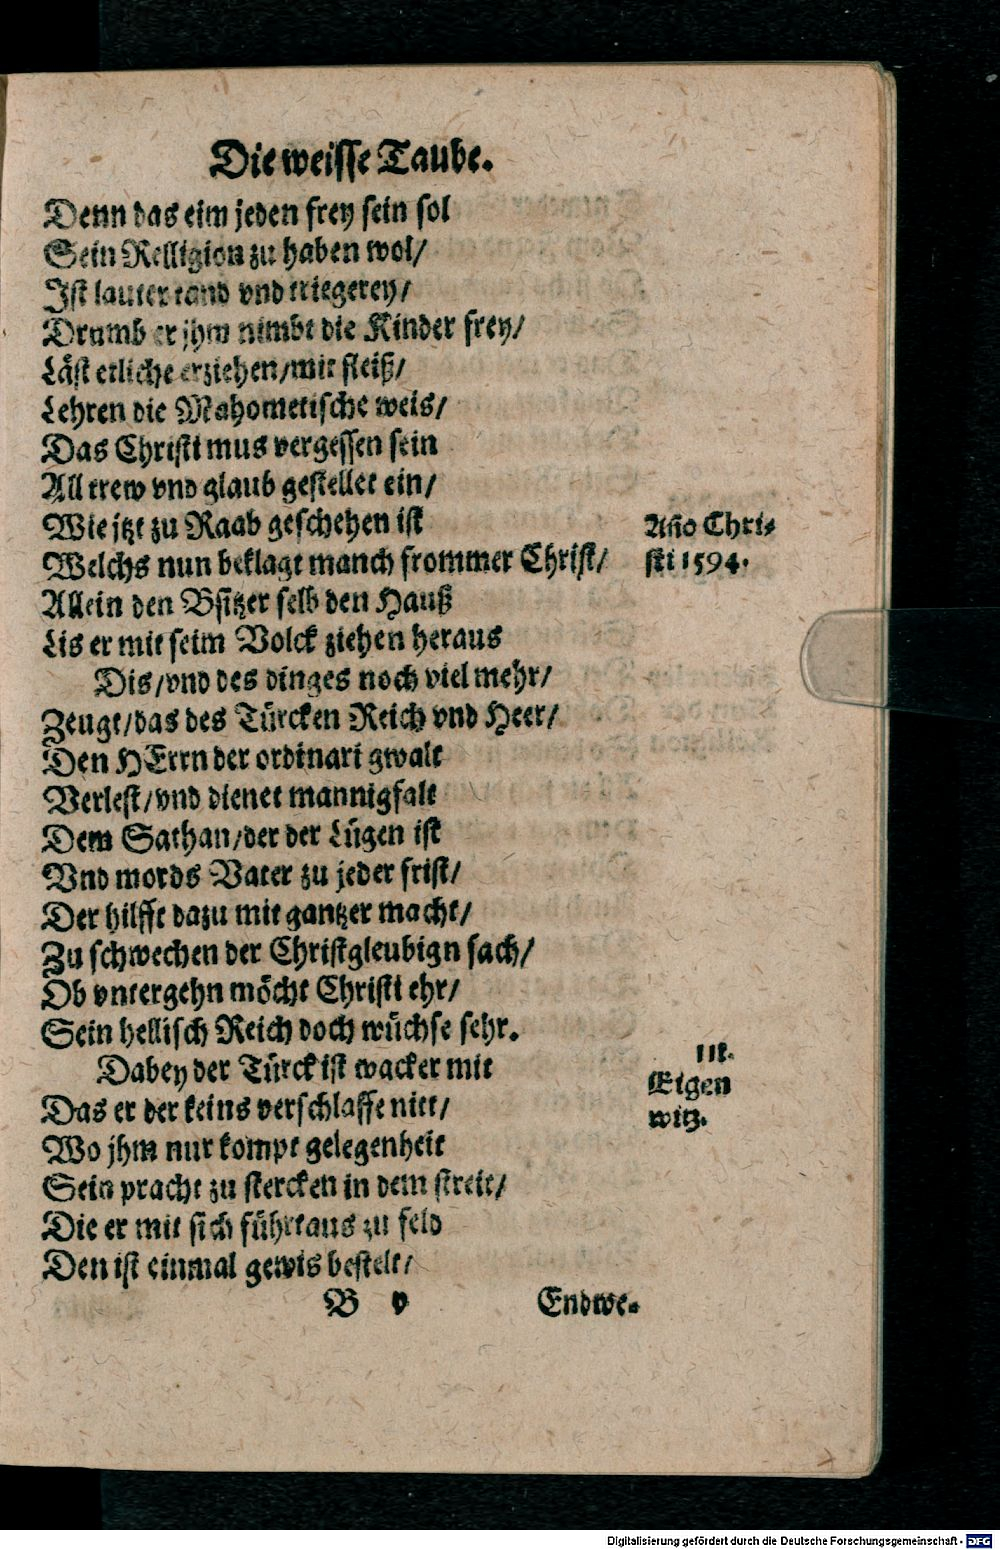 Die weisse Taube.
Denn das eim jeden frey sein sol
Sein Relligion zu haben wol/
Ist lauter tand vnd triegerey/
Drumb er jhm nimbt die Kinder frey/
Läst etliche erziehen/mit fleiß/
Lehren die Mahometische weis/
Das Christi mus vergessen sein
All trew vnd glaub gestellet ein/
Wie jtzt zu Raab geschehen ist
Año Chri-
Welchs nun beklagt manch frommer Christ/
sti 1594.
Allein den Bsitzer selb den Hauß
Lis er mit seim Volck ziehen heraus
Dis/vnd des dinges noch viel mehr/
Zeugt/das des Türcken Reich vnd Heer/
Den HErrn der ordinari gwalt
Verlest/vnd dienet mannigfalt
Dem Sathan/der der Lügen ist
Vnd mords Vater zu jeder frist/
Der hilfft dazu mit gantzer macht/
Zu schwechen der Christgleubign sach/
Ob vntergehn möcht Christi ehr/
Sein hellisch Reich doch wüchse sehr.
Dabey der Türck ist wacker mit
III.
Eigen
Das er der keins verschlaffe nitt/
witz.
Wo jhm nur kompt gelegenheit
Sein pracht zu stercken in dem streit/
Die er mit sich führt aus zu feld
Den ist einmal gewis bestelt/
B v
Endwe-
Digitalisierung gefördert durch die Deutsche Forschungsgemeinschaft - DFG